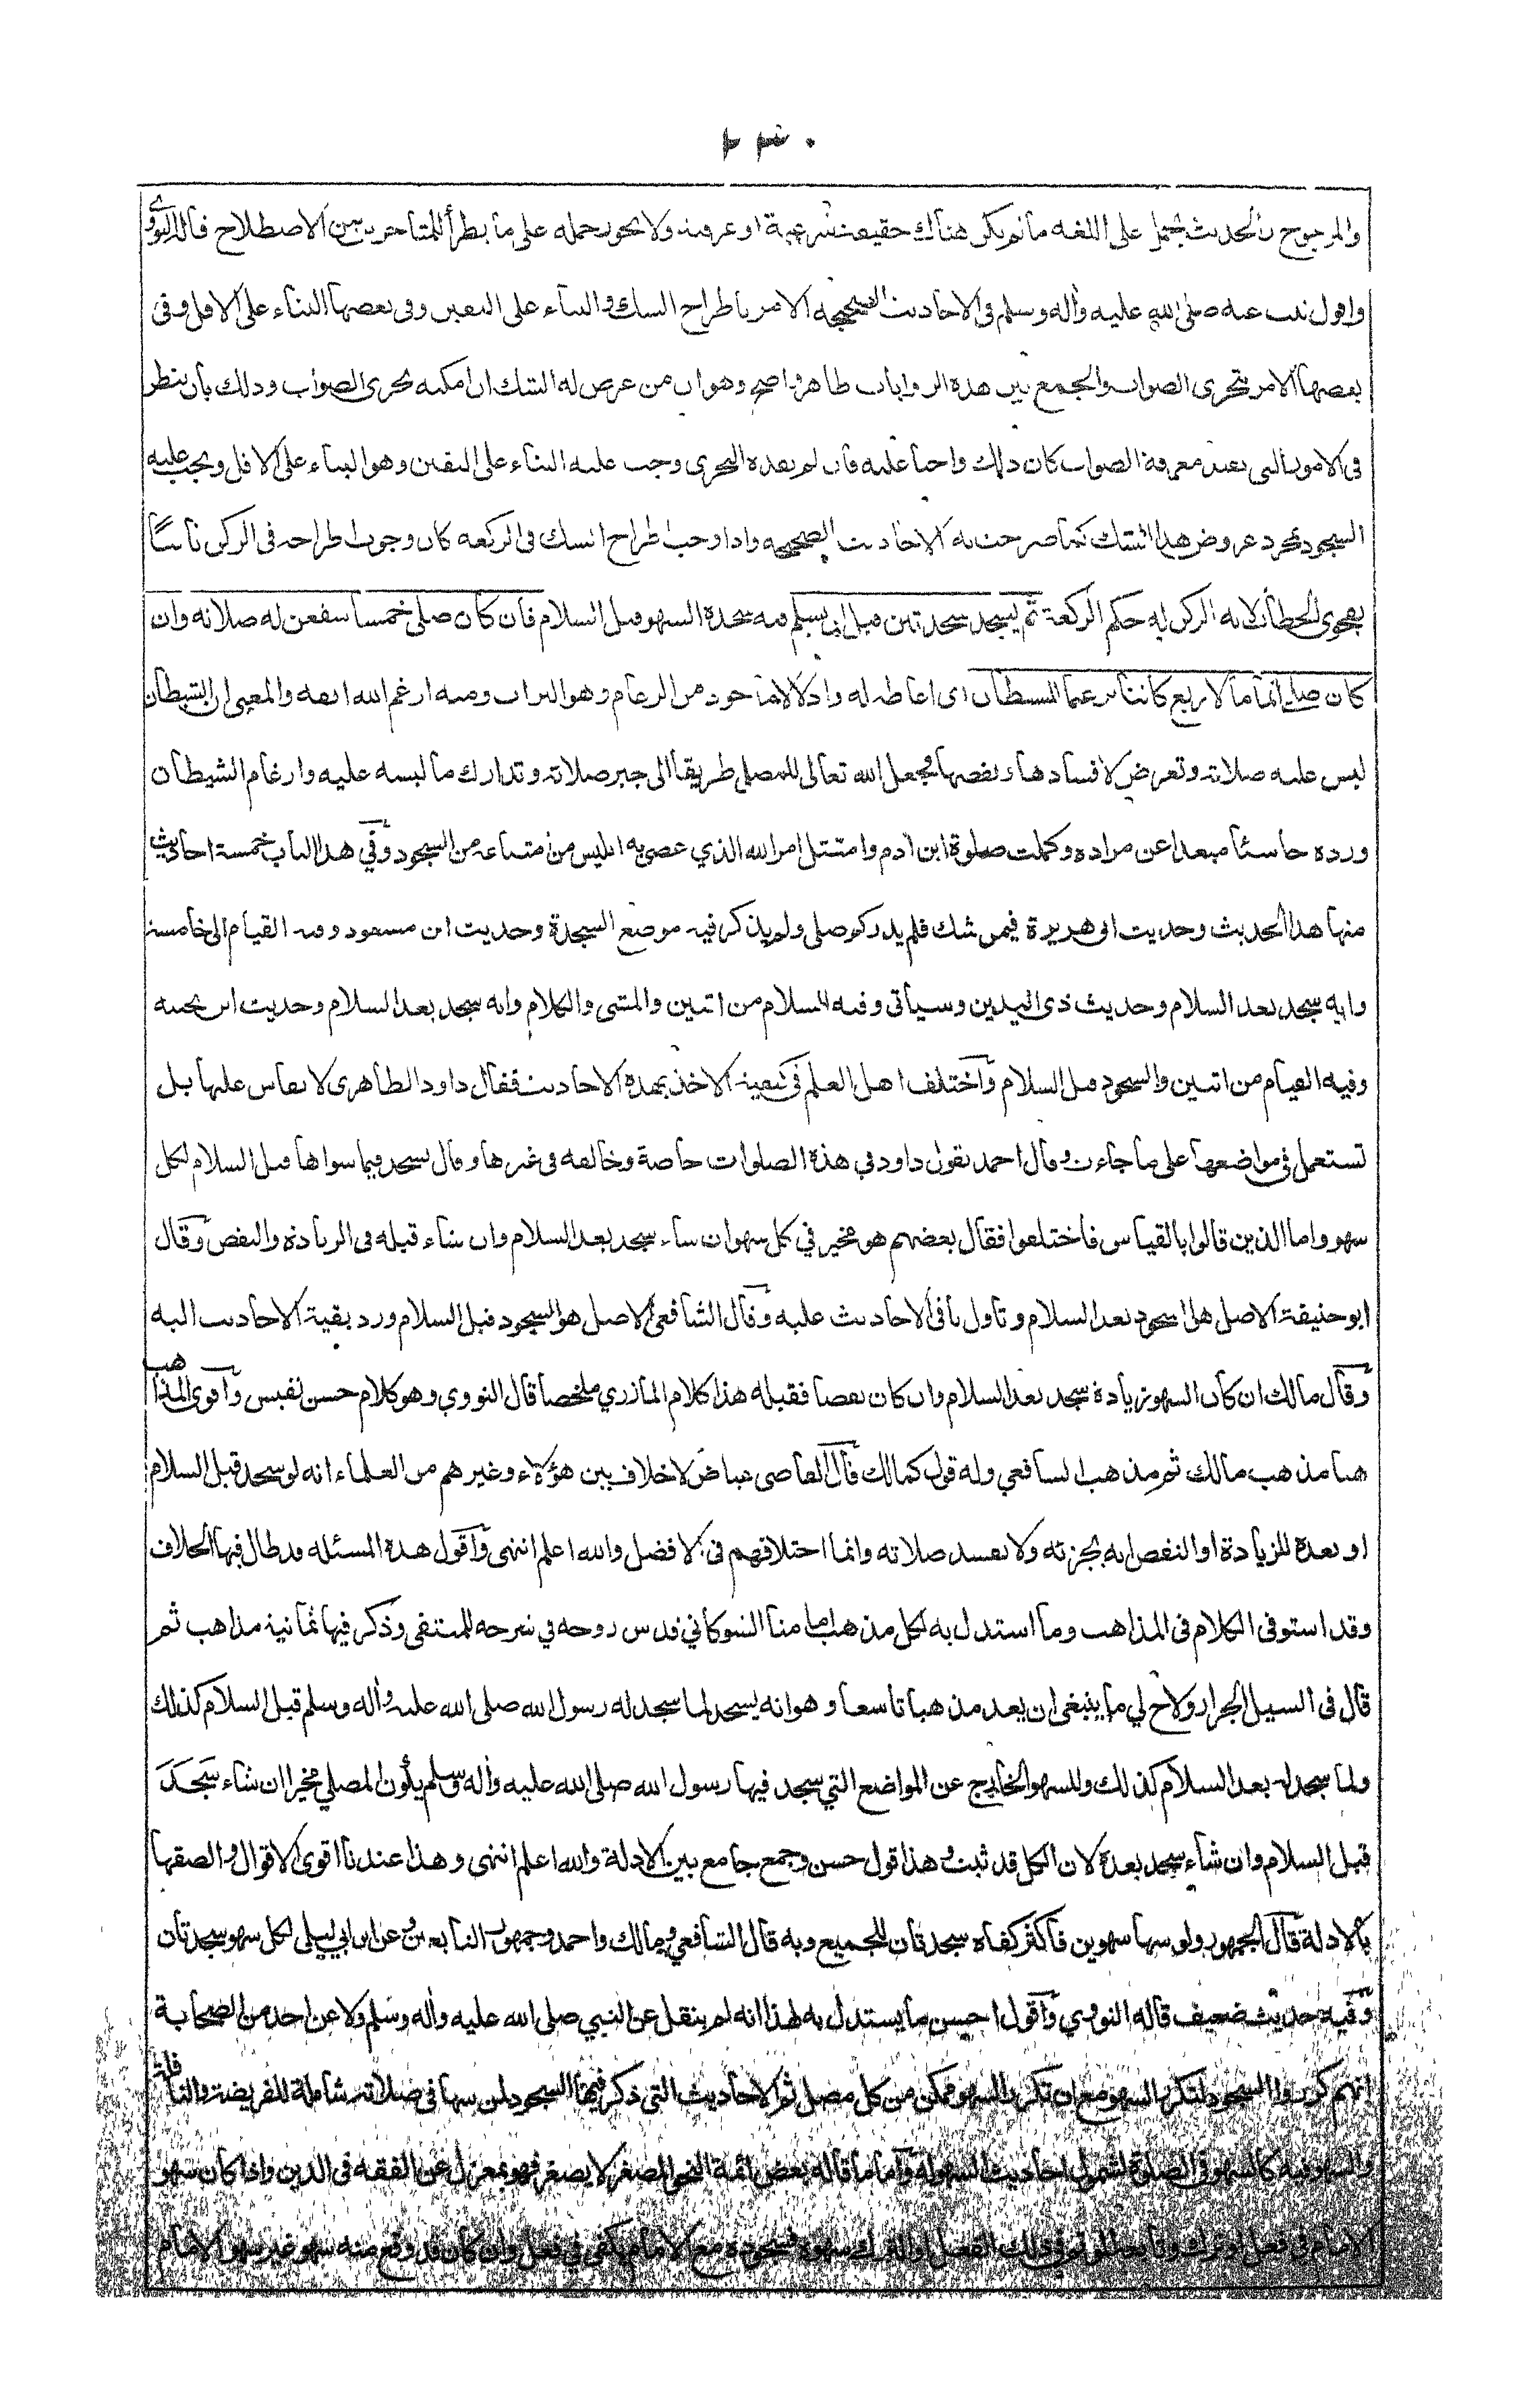 ٢٣٠
والمرجوح والحديث يحمل على اللغة ما لم يكن هناك حقيقة شرعية او عرفية ولا يجوز حمله على ما يطرأ للمتاخرين من الاصطلاح قاله النووي
واقول ثبت عنه صلى الله عليه واله وسلم في الاحاديث الصحيحة الامر باطراح الشك والبناء على اليقين وفي بعضها البناء على الاقل وفي
بعضها الامر بتحري الصواب والجمع بين هذه الروايات ظاهر واضح وهو ان من عرض له الشك ان امكنه تحري الصواب وذلك بأن ينظر
في الامور التي تفيد معرفة الصواب كان ذلك واجبا عليه فان لم يفده التحري وجب عليه البناء على اليقين وهو البناء على الاقل ويجب عليه
السجود بمجرد عروض هذا الشك كما صرحت به الاحاديث الصحيحة واذا وجب اطراح الشك في الركعة كان وجوب اطراحه في الركن ثابتا
بفحوى الخطاب لانه الركن له حكم الركعة ثم يسجد سجدتين قبل ان يسلم فيه سجدة السهو قبل السلام فان كان صلى خمسا شفعن له صلاته وان
كان صلى اتماما لاربع كانتا ترغيما للشيطان اى اغاظة له واذلالا ماخوذ من الرغام وهو التراب ومنه ارغم الله انفه والمعنى ان الشيطان
لبس عليه صلاته وتعرض لافسادها ونقصها فجعل الله تعالى للمصلي طريقا الى جبر صلاته وتدارك ما لبسه عليه وارغام الشيطان
ورده خاسئا مبعدا عن مراده وكملت صلوة ابن ادم وامتثل امر الله الذي عصى به ابليس من امتناعه من السجود وفي هذا الباب خمسة احاديث
منها هذا الحديث وحديث ابي هريرة فيمن شك فلم يدر كم صلى ولم يذكر فيه موضع السجدة وحديث ابن مسعود وفيه القيام الى خامسة
وانه سجد بعد السلام وحديث ذى اليدين وسيأتي وفيه السلام من اثنين والمشى والكلام وانه سجد بعد السلام وحديث ابن بحينه
وفيه القيام من اثنين والسجود قبل السلام واختلف اهل العلم في كيفية الاخذ بهذه الاحاديث فقال داود الظاهرى لا يقاس عليها بل
تستعمل في مواضعها على ما جاءت وقال احمد بقول داود في هذه الصلوات خاصة وخالفه في غيرها وقال يسجد فيما سواها قبل السلام لكل
سهو واما الذين قالوا بالقياس فاختلفوا فقال بعضهم هو مخير في كل سهو ان شاء سجد بعد السلام وان شاء قبله في الزيادة والنقص وقال
ابو حنيفة الاصل هو السجود بعد السلام وتاول باقى الاحاديث عليه وقال الشافعي الاصل هو السجود قبل السلام ورد بقية الاحاديث اليه
وقال مالك ان كان السهو زيادة سجد بعد السلام وان كان نقصا فقبله هذا كلام المازري ملخصا قال النووي وهو كلام حسن نفيس واقوى المذاهب
هنا مذهب مالك ثم مذهب الشافعي وله قول كمالك قال القاضى عياض لا خلاف بين هؤلاء وغيرهم من العلماء انه لو سجد قبل السلام
او بعده للزيادة او النقص انه يجزئه ولا يفسد صلاته وانما اختلافهم في الافضل والله اعلم انتهى واقول هذه المسئلة قد طال فيها الخلاف
وقد استوفى الكلام في المذاهب وما استدل به لكل مذهب امامنا الشوكاني قدس روحه في شرحه للمنتقى وذكر فيها ثمانية مذاهب ثم
قال في السيل الجرار ولاح لي ما ينبغي ان يعد مذهبا تاسعا وهو انه يسجد لما سجد له رسول الله صلى الله عليه واله وسلم قبل السلام كذلك
ولما سجد له بعد السلام كذلك وللسهو الخارج عن المواضع التي سجد فيها رسول الله صلى الله عليه واله وسلم يكون المصلي مخيرا ان شاء سجد
قبل السلام وان شاء سجد بعده لان الكل قد ثبت وهذا قول حسن وجمع جامع بين الادلة والله اعلم انتهى وهذا عندنا اقوى الاقوال والصقها
بالادلة قال الجمهور ولو سها سهوين فاكثر كفاه سجدتان للجميع وبه قال الشافعي ومالك واحمد وجمهور التابعين وعن ابن ابي ليلى لكل سهو سجدتان
وفيه حديث ضعيف قاله النووي واقول احسن ما يستدل به لهذا انه لم ينقل عن النبي صلى الله عليه واله وسلم ولا عن احد من الصحابة
انهم كرروا السجود لتكرر السهو مع ان تكرر السهو ممكن من كل مصل ثم الاحاديث التي ذكر فيها السجود لمن سها في صلاته شاملة للفريضة والنافلة
والسهو فيه كالسهو في الصلوة لشمول احاديث السهو له واما ما قاله بعض ائمة النحو المصغر لا يصغر فهو بمعزل عن الفقه في الدين واذا كان سهو
الامام في فعل او ترك وتابعه المؤتم في ذلك الفعل او الترك سهوا فسجوده مع الامام يكفي في فعل وان كان قد وقع منه سهو غير سهو الامام